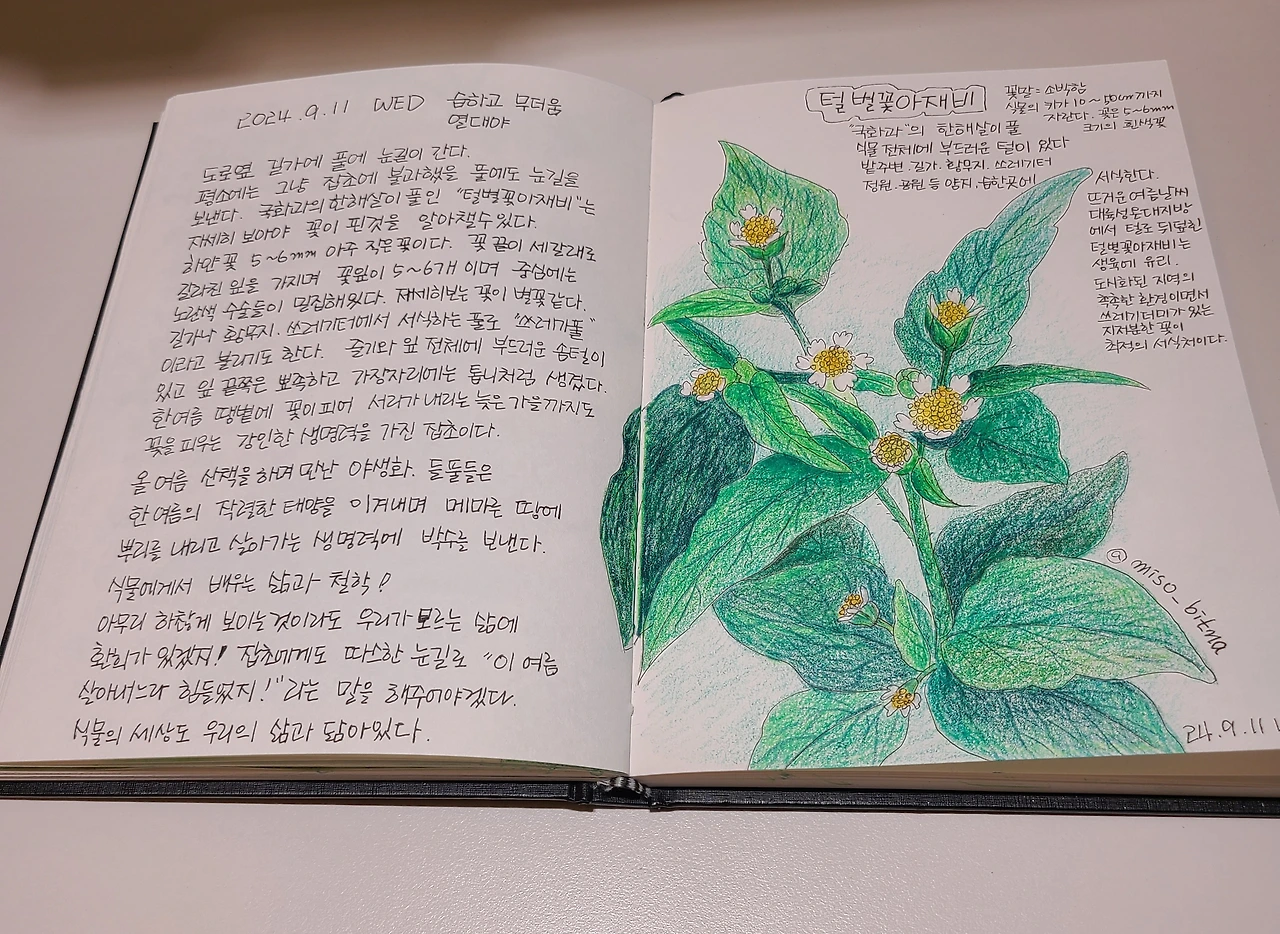 2024.9.11 WED 습하고 무더움
열대야
도로옆 길가에 풀에 눈길이 간다.
평소에는 그냥 잡초에 불과했을 풀에도 눈길을
보낸다. 국화과의 한해살이 풀인 "털별꽃아재비"는
자세히 보아야 꽃이 핀것을 알아챌수있다.
하얀꽃 5~6mm 아주 작은꽃이다. 꽃 끝이 세갈래로
갈라진 잎을 가지며 꽃잎이 5~6개 이며 중심에는
노란색 수술들이 밀집해있다. 자세히보는 꽃이 별꽃같다.
길가나 황무지. 쓰레기터에서 서식하는 풀로 "쓰레기풀"
이라고 불리기도 한다. 줄기와 잎 전체에 부드러운 솜털이
있고 잎 끝쪽은 뾰족하고 가장자리에는 톱니처럼 생겼다.
한여름 땡볕에 꽃이피어 서리가 내리는 늦은 가을까지도
꽃을 피우는 강인한 생명력을 가진 잡초이다.
올 여름 산책을 하며 만난 야생화. 들풀들은
한여름의 작렬한 태양을 이겨내며 메마른 땅에
뿌리를 내리고 살아가는 생명력에 박수를 보낸다.
식물에게서 배우는 삶과 철학!
아무리 하찮게 보이는것이라도 우리가 모르는 삶에
환희가 있겠지! 잡초에게도 따스한 눈길로 "이 여름
살아내느라 힘들었지!"라는 말을 해주어야겠다.
식물의 세상도 우리의 삶과 닮아있다.
털별꽃아재비
꽃말=소박함
식물의 키가 10~50cm까지
자란다. 꽃은 5~6mm
크기의 흰색꽃
"국화과"의 한해살이 풀
식물 전체에 부드러운 털이 있다
밭주변. 길가. 황무지. 쓰레기터
정원. 공원 등 양지. 습한곳에
서식한다.
뜨거운 여름날씨
대륙성온대지방
에서 털로 뒤덮힌
털별꽃아재비는
생육에 유리.
도시화된 지역의
축축한 환경이면서
쓰레기더미가 있는
지저분한 곳이
최적의 서식처이다.
@miso_bitna
24.9.11